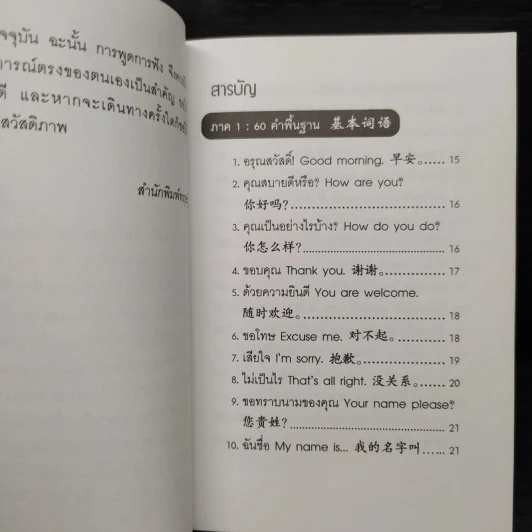 จจุบัน ฉะนั้น การพูดการฟัง
การณ์ตรงของตนเองเป็นสำคัญ
ดี และหากจะเดินทางครั้งใด
สวัสดิภาพ
สำนักพิมพ์
สารบัญ
ภาค 1 : 60 คำพื้นฐาน 基本词语
1. อรุณสวัสดิ์! Good morning. 早安。...... 15
2. คุณสบายดีหรือ? How are you?
你好吗?................................ 16
3. คุณเป็นอย่างไรบ้าง? How do you do?
你怎么样?............................. 16
4. ขอบคุณ Thank you. 谢谢。............... 17
5. ด้วยความยินดี You are welcome.
随时欢迎。............................. 18
6. ขอโทษ Excuse me. 对不起。............ 18
7. เสียใจ I'm sorry. 抱歉。.................. 19
8. ไม่เป็นไร That's all right. 没关系。..... 20
9. ขอทราบนามของคุณ Your name please?
您贵姓?................................ 21
10. ฉันชื่อ My name is... 我的名字叫...... 21